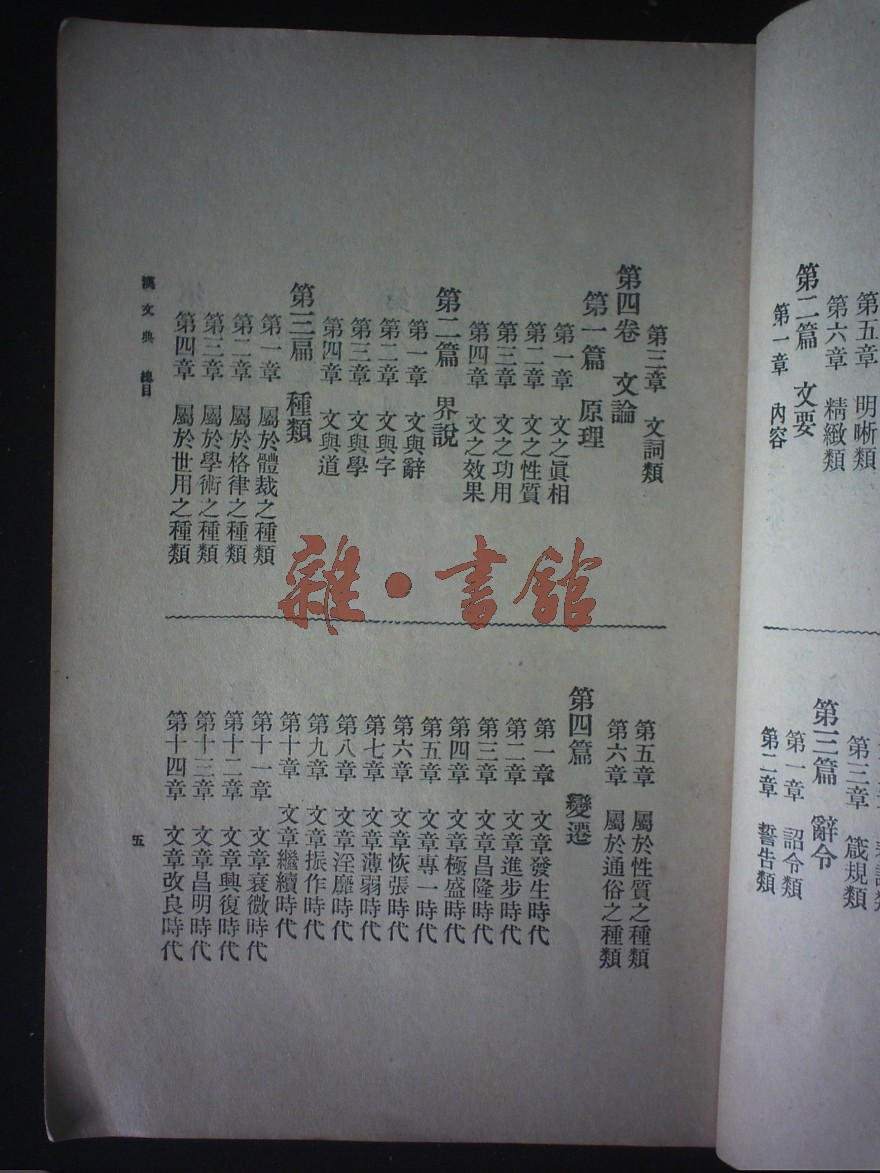 第五章 明晰類
第六章 精緻類
第二篇 文要
第一章 內容
第三章 箴規類
第三篇 辭令
第一章 詔令類
第二章 誓告類
第三章 文詞類
第四卷 文論
第一篇 原理
第一章 文之眞相
第二章 文之性質
第三章 文之功用
第四章 文之效果
第二篇 界說
第一章 文與辭
第二章 文與字
第三章 文與學
第四章 文與道
第三扁 種類
第一章 屬於體裁之種類
第二章 屬於格律之種類
第三章 屬於學術之種類
第四章 屬於世用之種類
第五章 屬於性質之種類
第六章 屬於通俗之種類
第四篇 變遷
第一章 文章發生時代
第二章 文章進步時代
第三章 文章昌隆時代
第四章 文章極盛時代
第五章 文章專一時代
第六章 文章恢張時代
第七章 文章薄弱時代
第八章 文章淫靡時代
第九章 文章振作時代
第十章 文章繼續時代
第十一章 文章衰微時代
第十二章 文章興復時代
第十三章 文章昌明時代
第十四章 文章改良時代
漢文典 總目
五
雜·書館